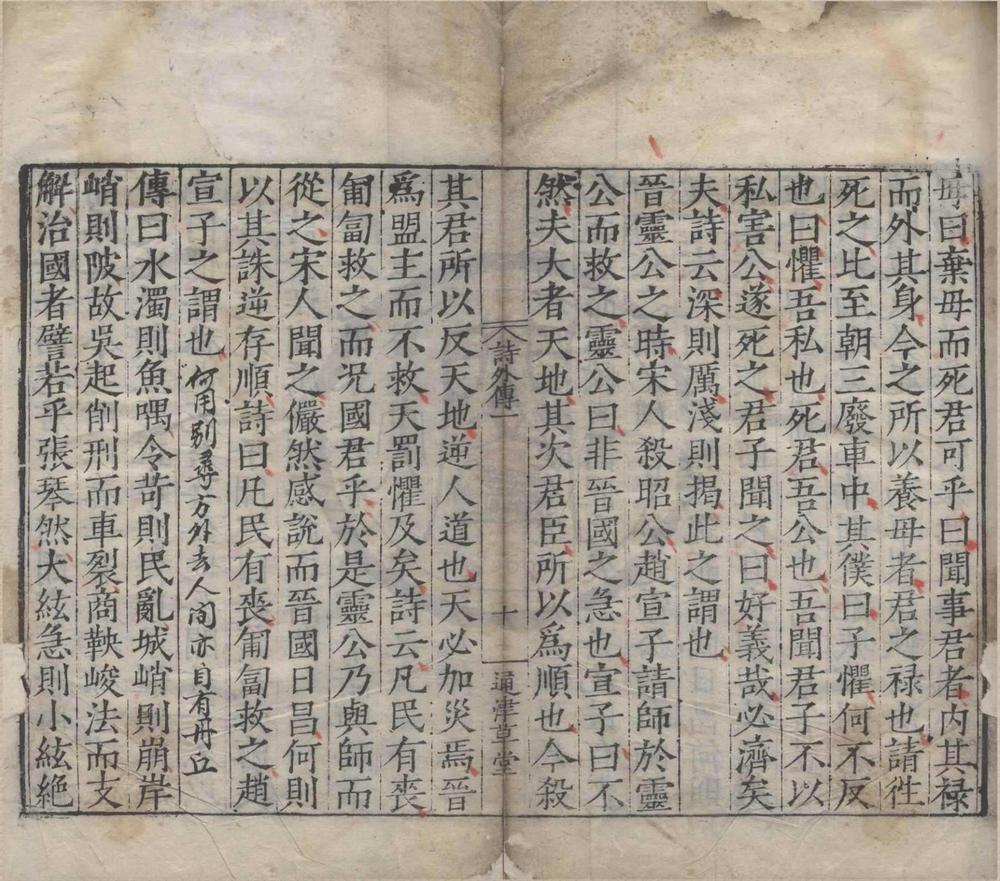 母曰棄母而死君可乎曰聞事君者內其祿
而外其身今之所以養母者君之祿也請往
死之比至朝三廢車中其僕曰子懼何不反
也曰懼吾私也死君吾公也吾聞君子不以
私害公遂死之君子聞之曰好義哉必濟矣
夫詩云深則厲淺則揭此之謂也
晉靈公之時宋人殺昭公趙宣子請師於靈
公而救之靈公曰非晉國之急也宣子曰不
然夫大者天地其次君臣所以爲順也今殺
詩外傳一
十
通津草堂
其君所以反天地逆人道也天必加災焉晉
爲盟主而不救天罰懼及矣詩云凡民有喪
匍匐救之而况國君乎於是靈公乃與師而
從之宋人聞之儼然感說而晉國日昌何則
以其誅逆存順詩曰凡民有喪匍匐救之趙
宣子之謂也何用别尋方外去人間亦自有丹丘
傳曰水濁則魚喁令苛則民亂城峭則崩岸
峭則陂故吳起削刑而車裂商鞅峻法而支
解治國者譬若乎張琴然大絃急則小絃絕